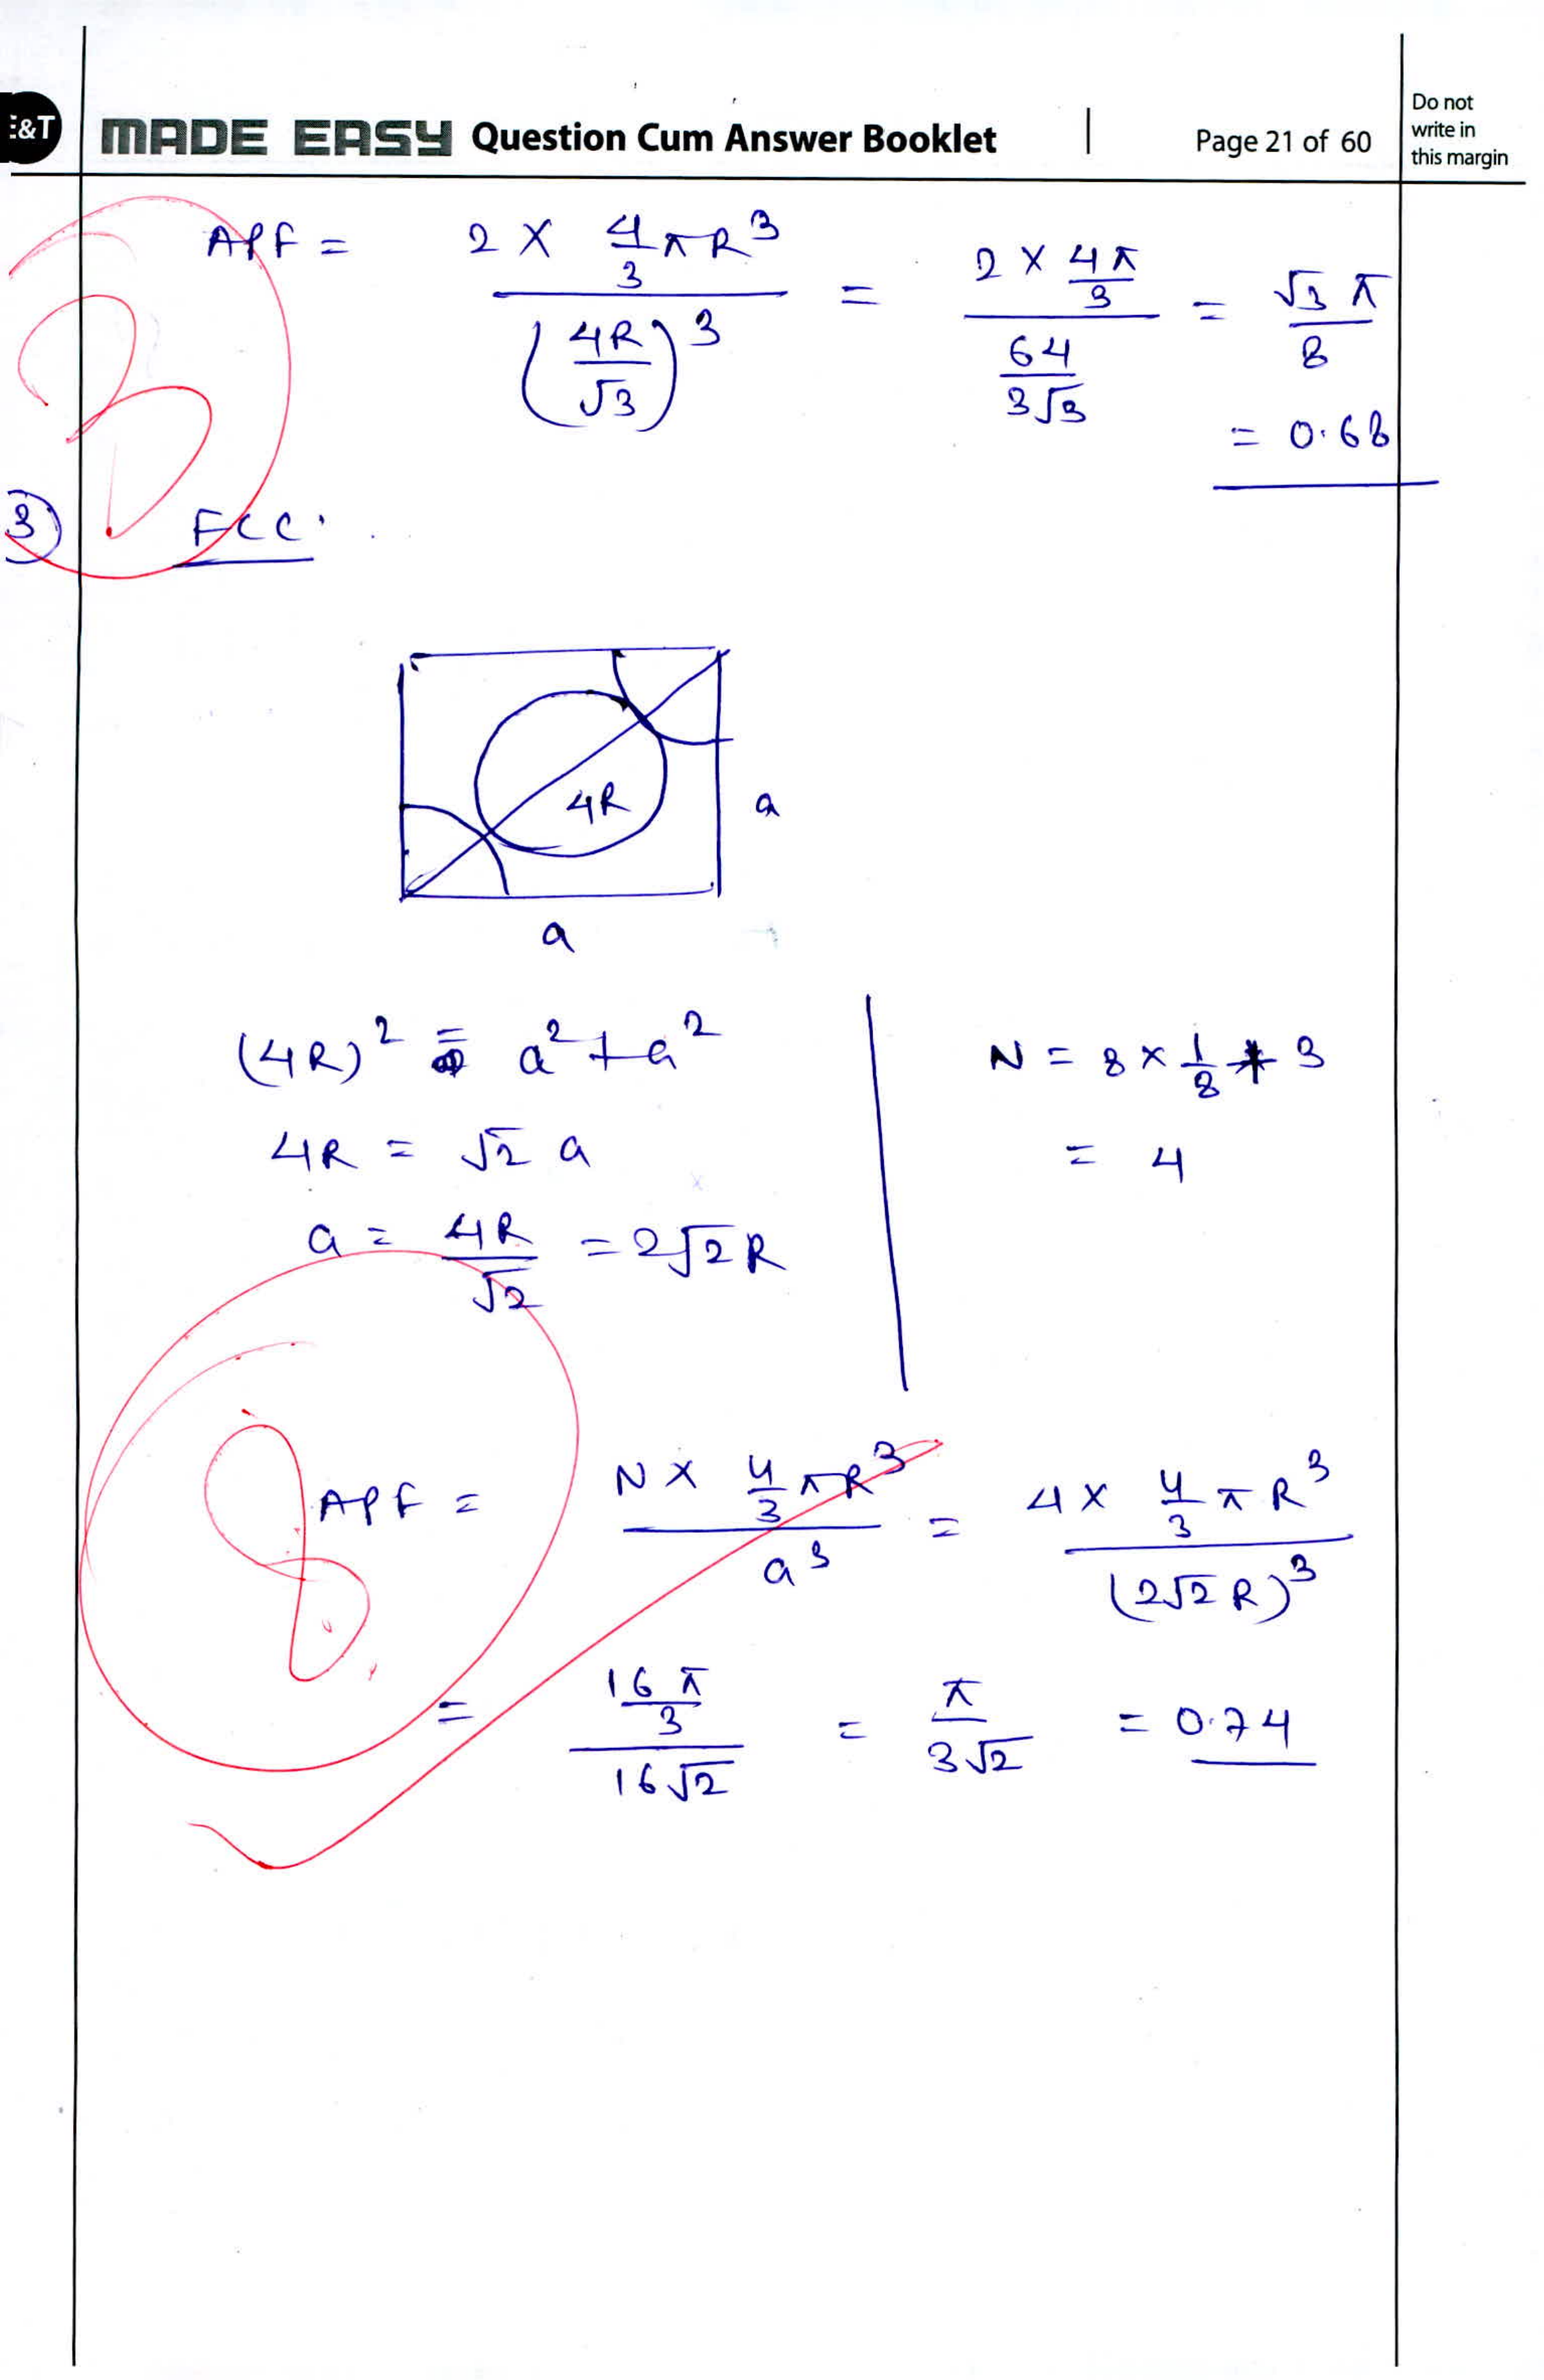 E&T
MADE EASY Question Cum Answer Booklet | Page 21 of 60
Do not
write in
this margin
3
APF = 2 × 4/3 πR³ / (4R/√3)³ = 2 × 4π/3 / 64/3√3 = √3 π / 8
= 0.68
3) FCC.
4R
a
a
(4R)² = a² + a²
4R = √2 a
a = 4R/√2 = 2√2 R
N = 8 × 1/8 + 3
= 4
8
APF = N × 4/3 πR³ / a³ = 4 × 4/3 π R³ / (2√2 R)³
= 16π/3 / 16√2 = π / 3√2 = 0.74